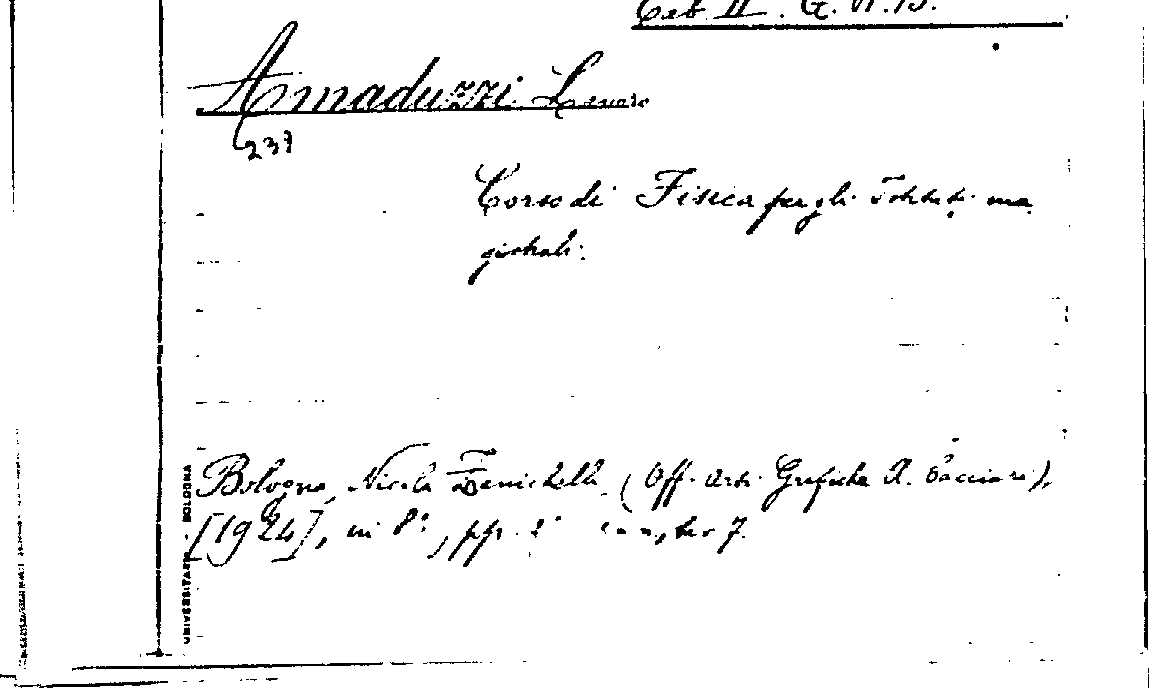 II. G. VI. 15.
Amaduzzi Lavoro
237
Corso di Fisica per gli Istituti ma
gistrali.
Bologna, Nicola Zanichelli (Off. Arti Grafiche A. Cacciari),
[1924], in 8°, pp.
UNIVERSITARIA - BOLOGNA